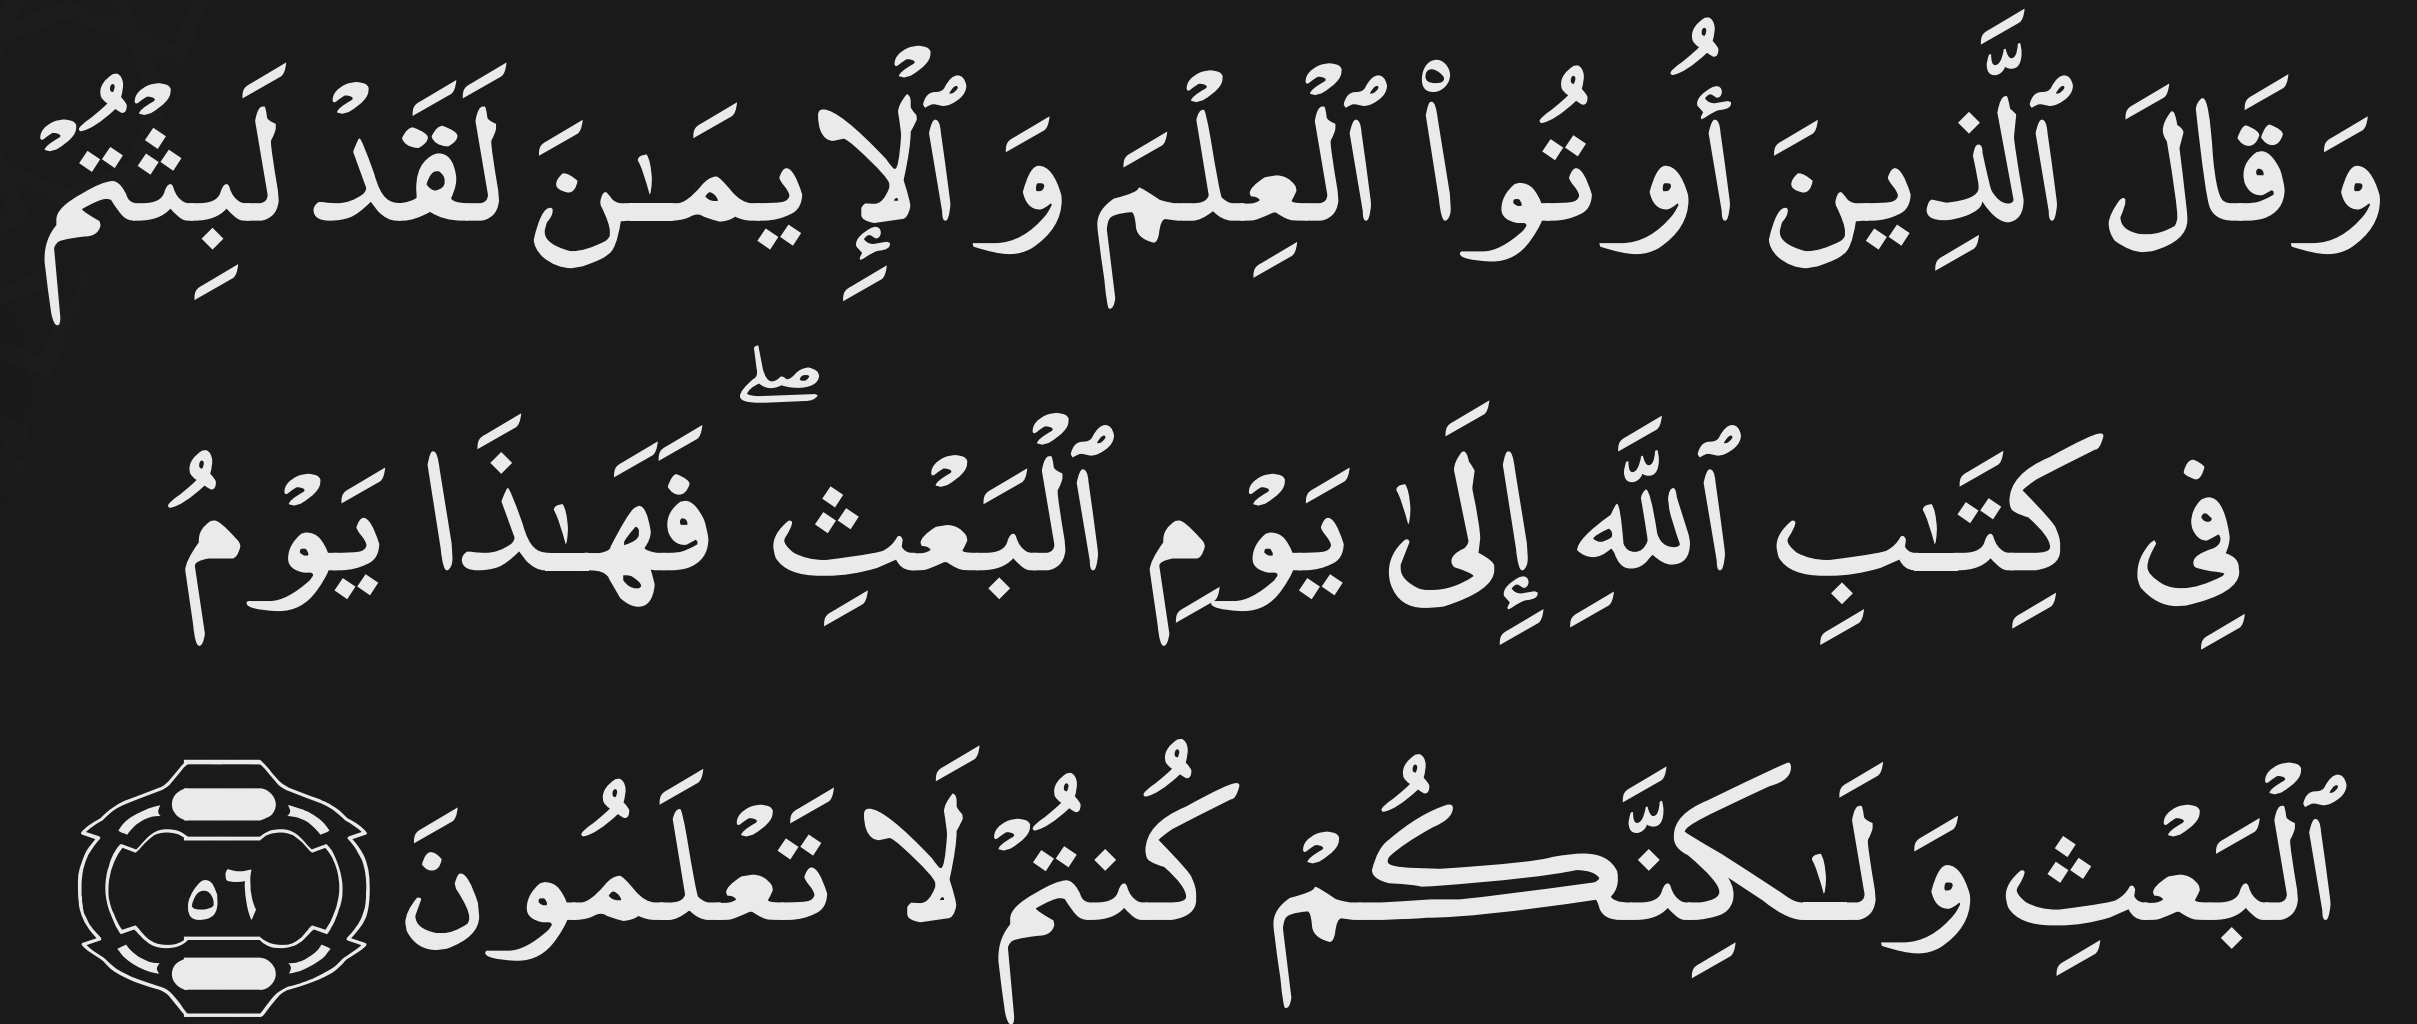 وَقَالَ ٱلَّذِينَ أُوتُوا۟ ٱلْعِلْمَ وَٱلْإِيمَـٰنَ لَقَدْ لَبِثْتُمْ
فِى كِتَـٰبِ ٱللَّهِ إِلَىٰ يَوْمِ ٱلْبَعْثِ ۖ فَهَـٰذَا يَوْمُ
ٱلْبَعْثِ وَلَـٰكِنَّكُمْ كُنتُمْ لَا تَعْلَمُونَ ٥٦